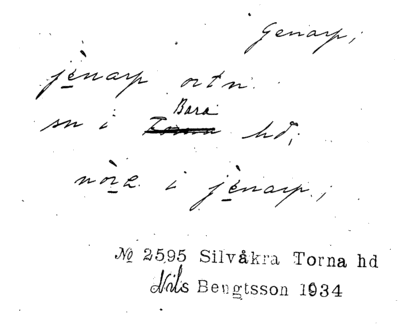 Genarp,
jènarp ortn.
Bara
sn i Torna hd;
nòrρ i jènarp;
No 2595 Silvåkra Torna hd
Nils Bengtsson 1934